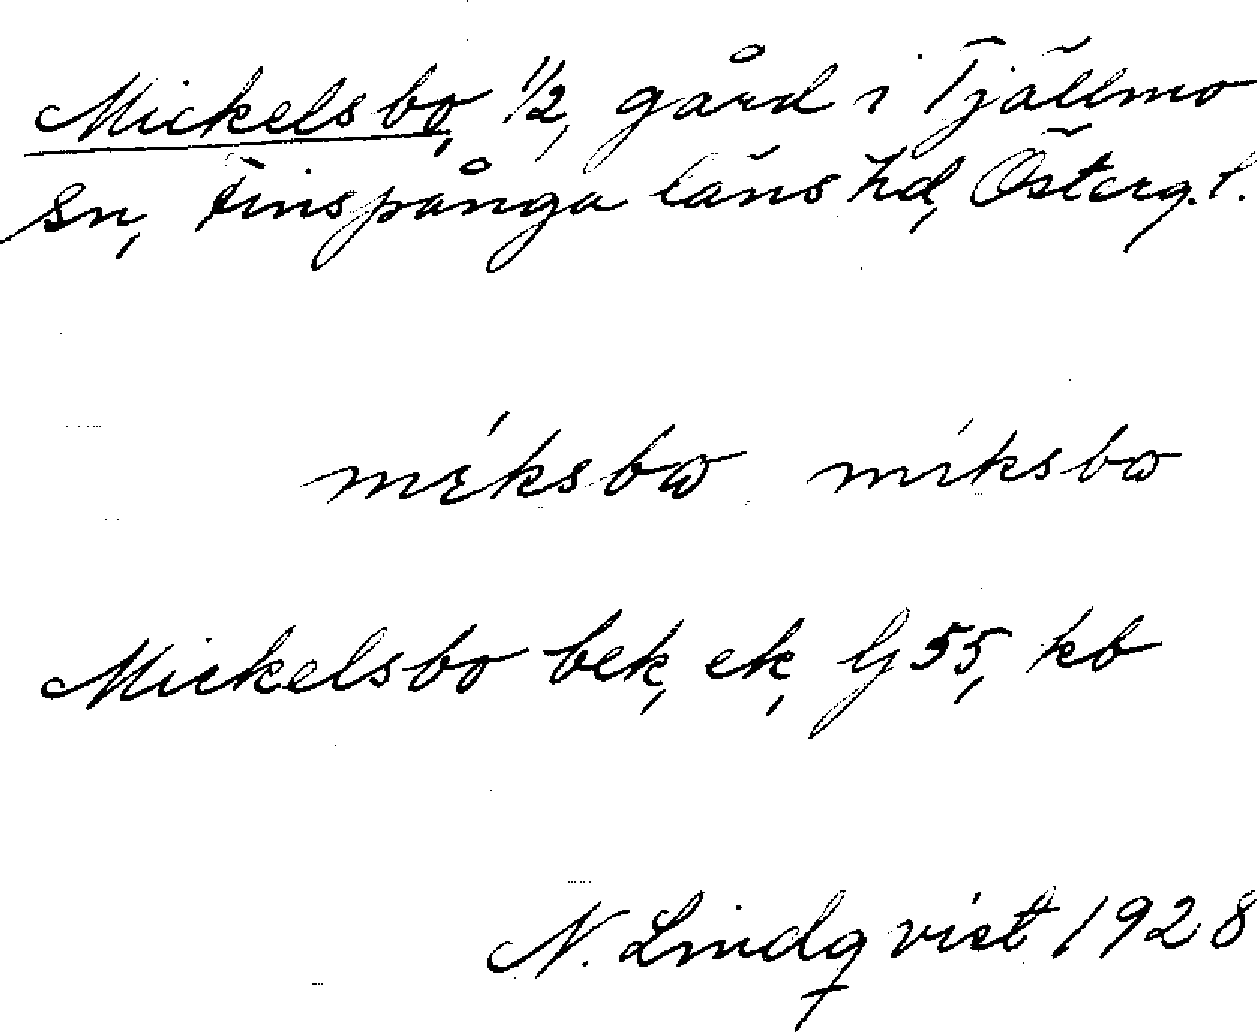 Mickelsbo, 1/2, gård i Tjällmo
sn, Finspånga läns hd, Österg. l.
méksbɷ míksbɷ
Mickelsbo bek, ek, G 55, kb
N. Lindqvist 1928